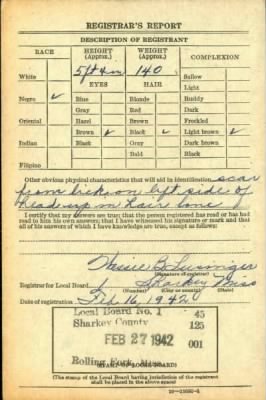 REGISTRAR'S REPORT
DESCRIPTION OF REGISTRANT
RACE HEIGHT (Approx.) WEIGHT (Approx.) COMPLEXION
White 5 ft 4 in 140 Sallow
EYES HAIR Light
Negro ✓ Blue Blonde Ruddy
Gray Red Dark
Oriental Hazel Brown Freckled
Brown ✓ Black ✓ Light brown ✓
Indian Black Gray Dark brown
Bald Black
Filipino
Other obvious physical characteristics that will aid in identification scar
from on left side of
head up in hair
I certify that my answers are true; that the person registered has read or has had
read to him his own answers; that I have witnessed his signature or mark and that
all of his answers of which I have knowledge are true, except as follows:
B.
(Signature of registrar)
Registrar for Local Board 1 Sharkey Miss
(Number) (City or county) (State)
Date of registration Feb 16, 1942
Local Board No. 1 45
Sharkey County 125
FEB 27 1942 001
Rolling Fork, Miss.
(STAMP OF LOCAL BOARD)
(The stamp of the Local Board having jurisdiction of the registrant
shall be placed in the above space)